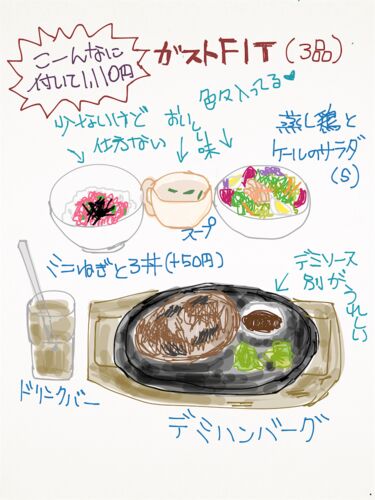 こーんなに
付いて1,110円
ガストFIT(3品)
色々入ってる
少ないけど
仕方ない
おいと
味
蒸し鶏と
ケールのサラダ
(S)
スープ
ミニねぎとろ丼(+50円)
デミソース
別が
うれしい
ドリンクバー
デミハンバーグ